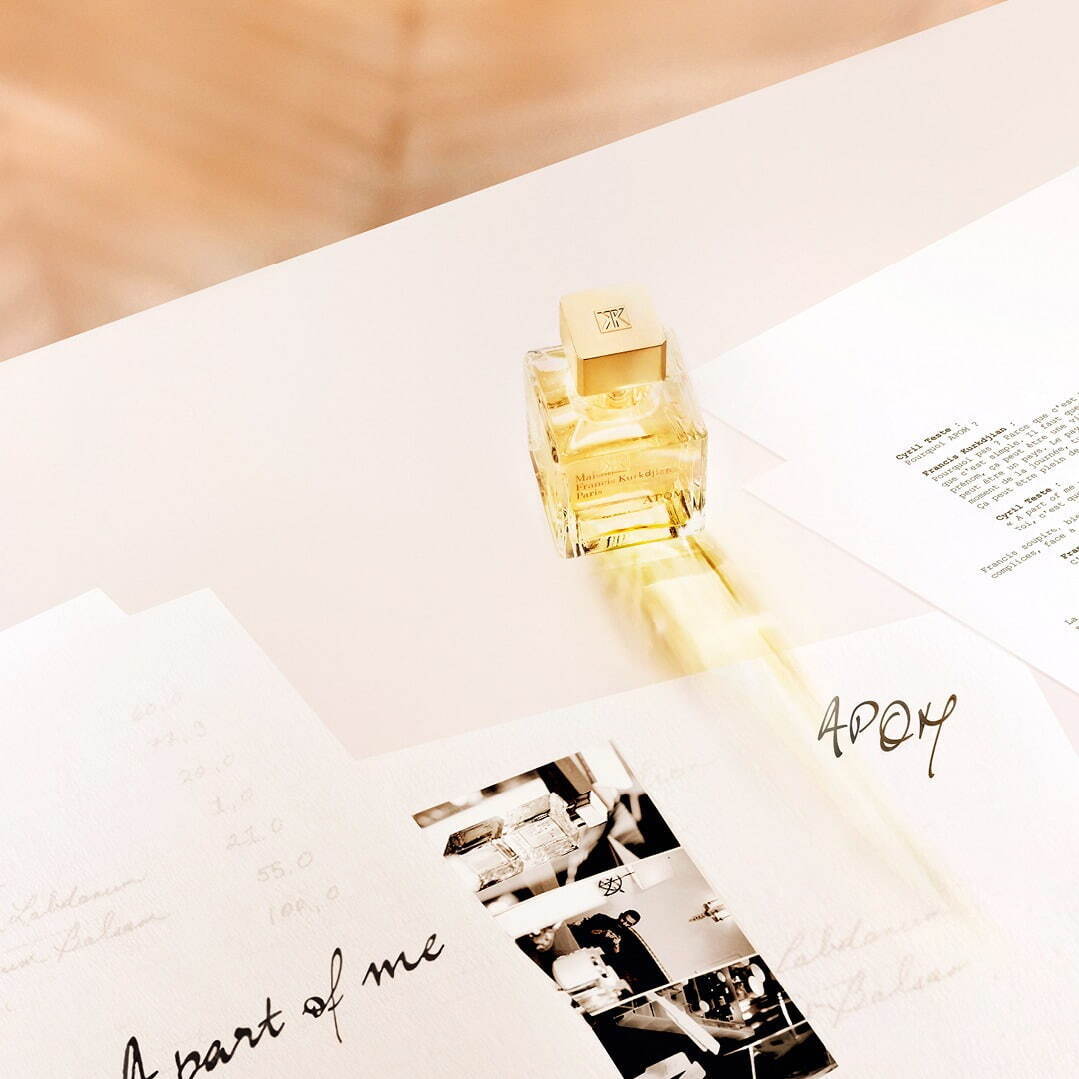 Maison
Francis Kurkdjian
Paris
APOM
Cyril Teste :
Pourquoi APOM ?
Francis Kurkdjian :
Pourquoi pas ? Parce que c'est
que c'est simple. Il faut que
prénom, ça peut être une
peut être un pays, le
moment de la journée,
Ça peut être plein de
Cyril Teste :
« A part of me
toi, c'est que
Francis soupire,
complices, face à
La
APOM
20.0
1.0
21.0
55.0
Labdanum
Balsam
A part of me
Labdanum
Balsam